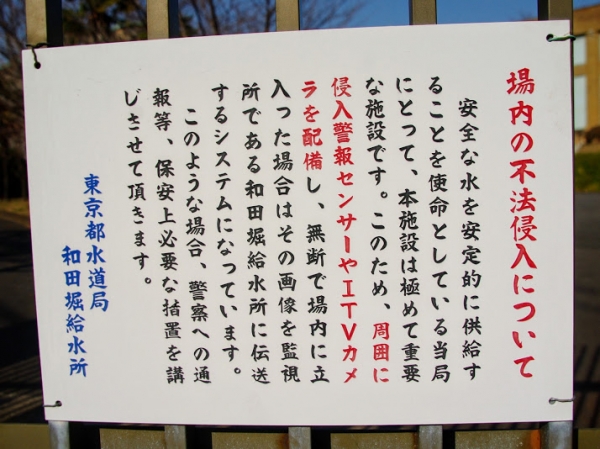 場内の不法侵入について
安全な水を安定的に供給す
ることを使命としている当局
にとって、本施設は極めて重要
な施設です。このため、周囲に
侵入警報センサーやITVカメ
ラを配備し、無断で場内に立
入った場合はその画像を監視
所である和田堀給水所に伝送
するシステムになっています。
このような場合、警察への通
報等、保安上必要な措置を講
じさせて頂きます。
東京都水道局
和田堀給水所